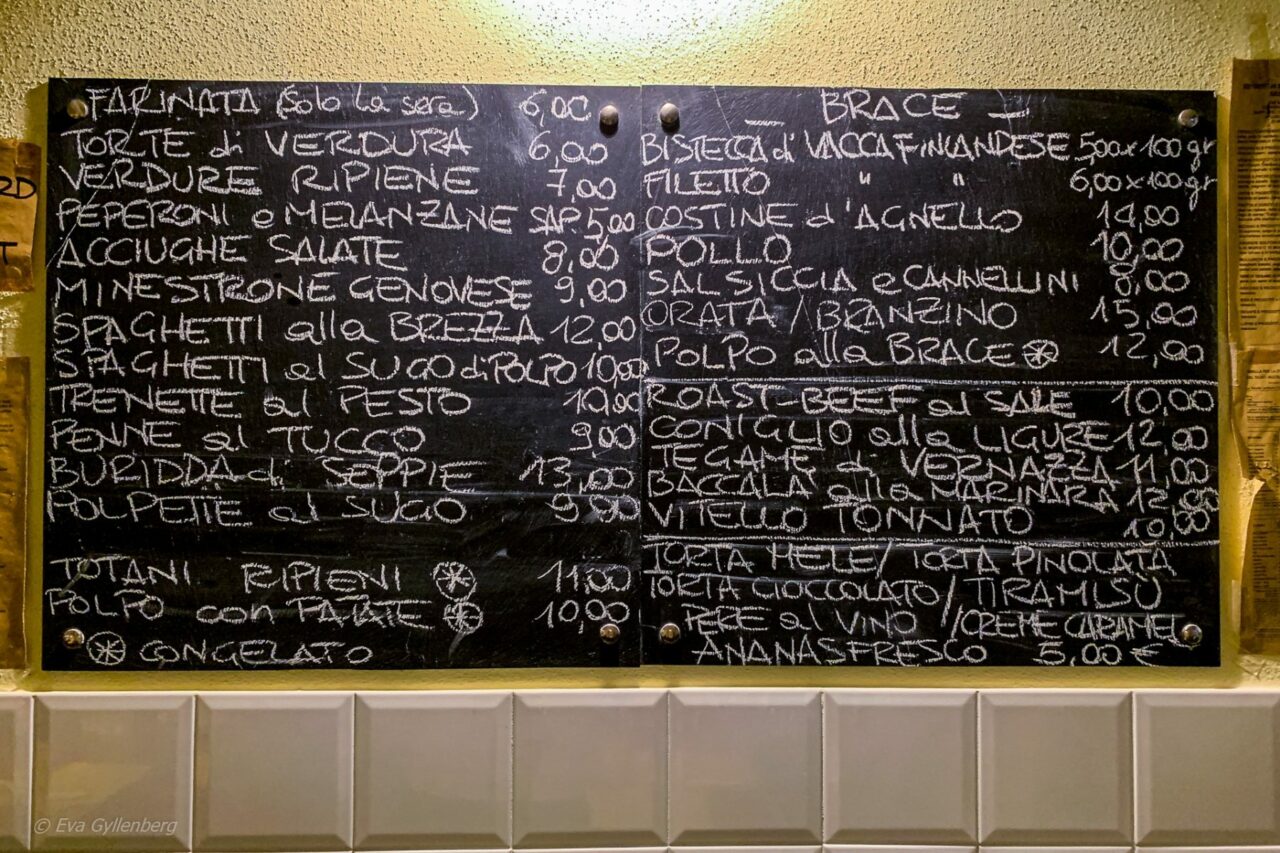 FARINATA (solo la sera) 6,00
TORTE di VERDURA 6,00
VERDURE RIPIENE 7,00
PEPERONI e MELANZANE SAP. 5,00
ACCIUGHE SALATE 8,00
MINESTRONE GENOVESE 9,00
SPAGHETTI alla BREZZA 12,00
SPAGHETTI al SUGO di POLPO 10,00
TRENETTE al PESTO 10,00
PENNE al TUCCO 9,00
BURIDDA di SEPPIE 13,00
POLPETTE al SUGO 9,00
TOTANI RIPIENI ⊛ 11,00
POLPO con PATATE ⊛ 10,00
⊛ CONGELATO
BRACE
BISTECCA di VACCA FINLANDESE 5,00 x 100 gr
FILETTO " " 6,00 x 100 gr
COSTINE d'AGNELLO 14,00
POLLO 10,00
SALSICCIA e CANNELLINI 8,00
ORATA / BRANZINO 15,00
POLPO alla BRACE ⊛ 12,00
ROAST-BEEF al SALE 10,00
CONIGLIO alla LIGURE 12,00
TEGAME di VERNAZZA 11,00
BACCALA alla MARINARA 12,00
VITELLO TONNATO 10,00
TORTA MELE / TORTA PINOLATA
TORTA CIOCCOLATO / TIRAMISÙ
PERE al VINO / CREME CARAMEL
ANANAS FRESCO 5,00 €
© Eva Gyllenberg